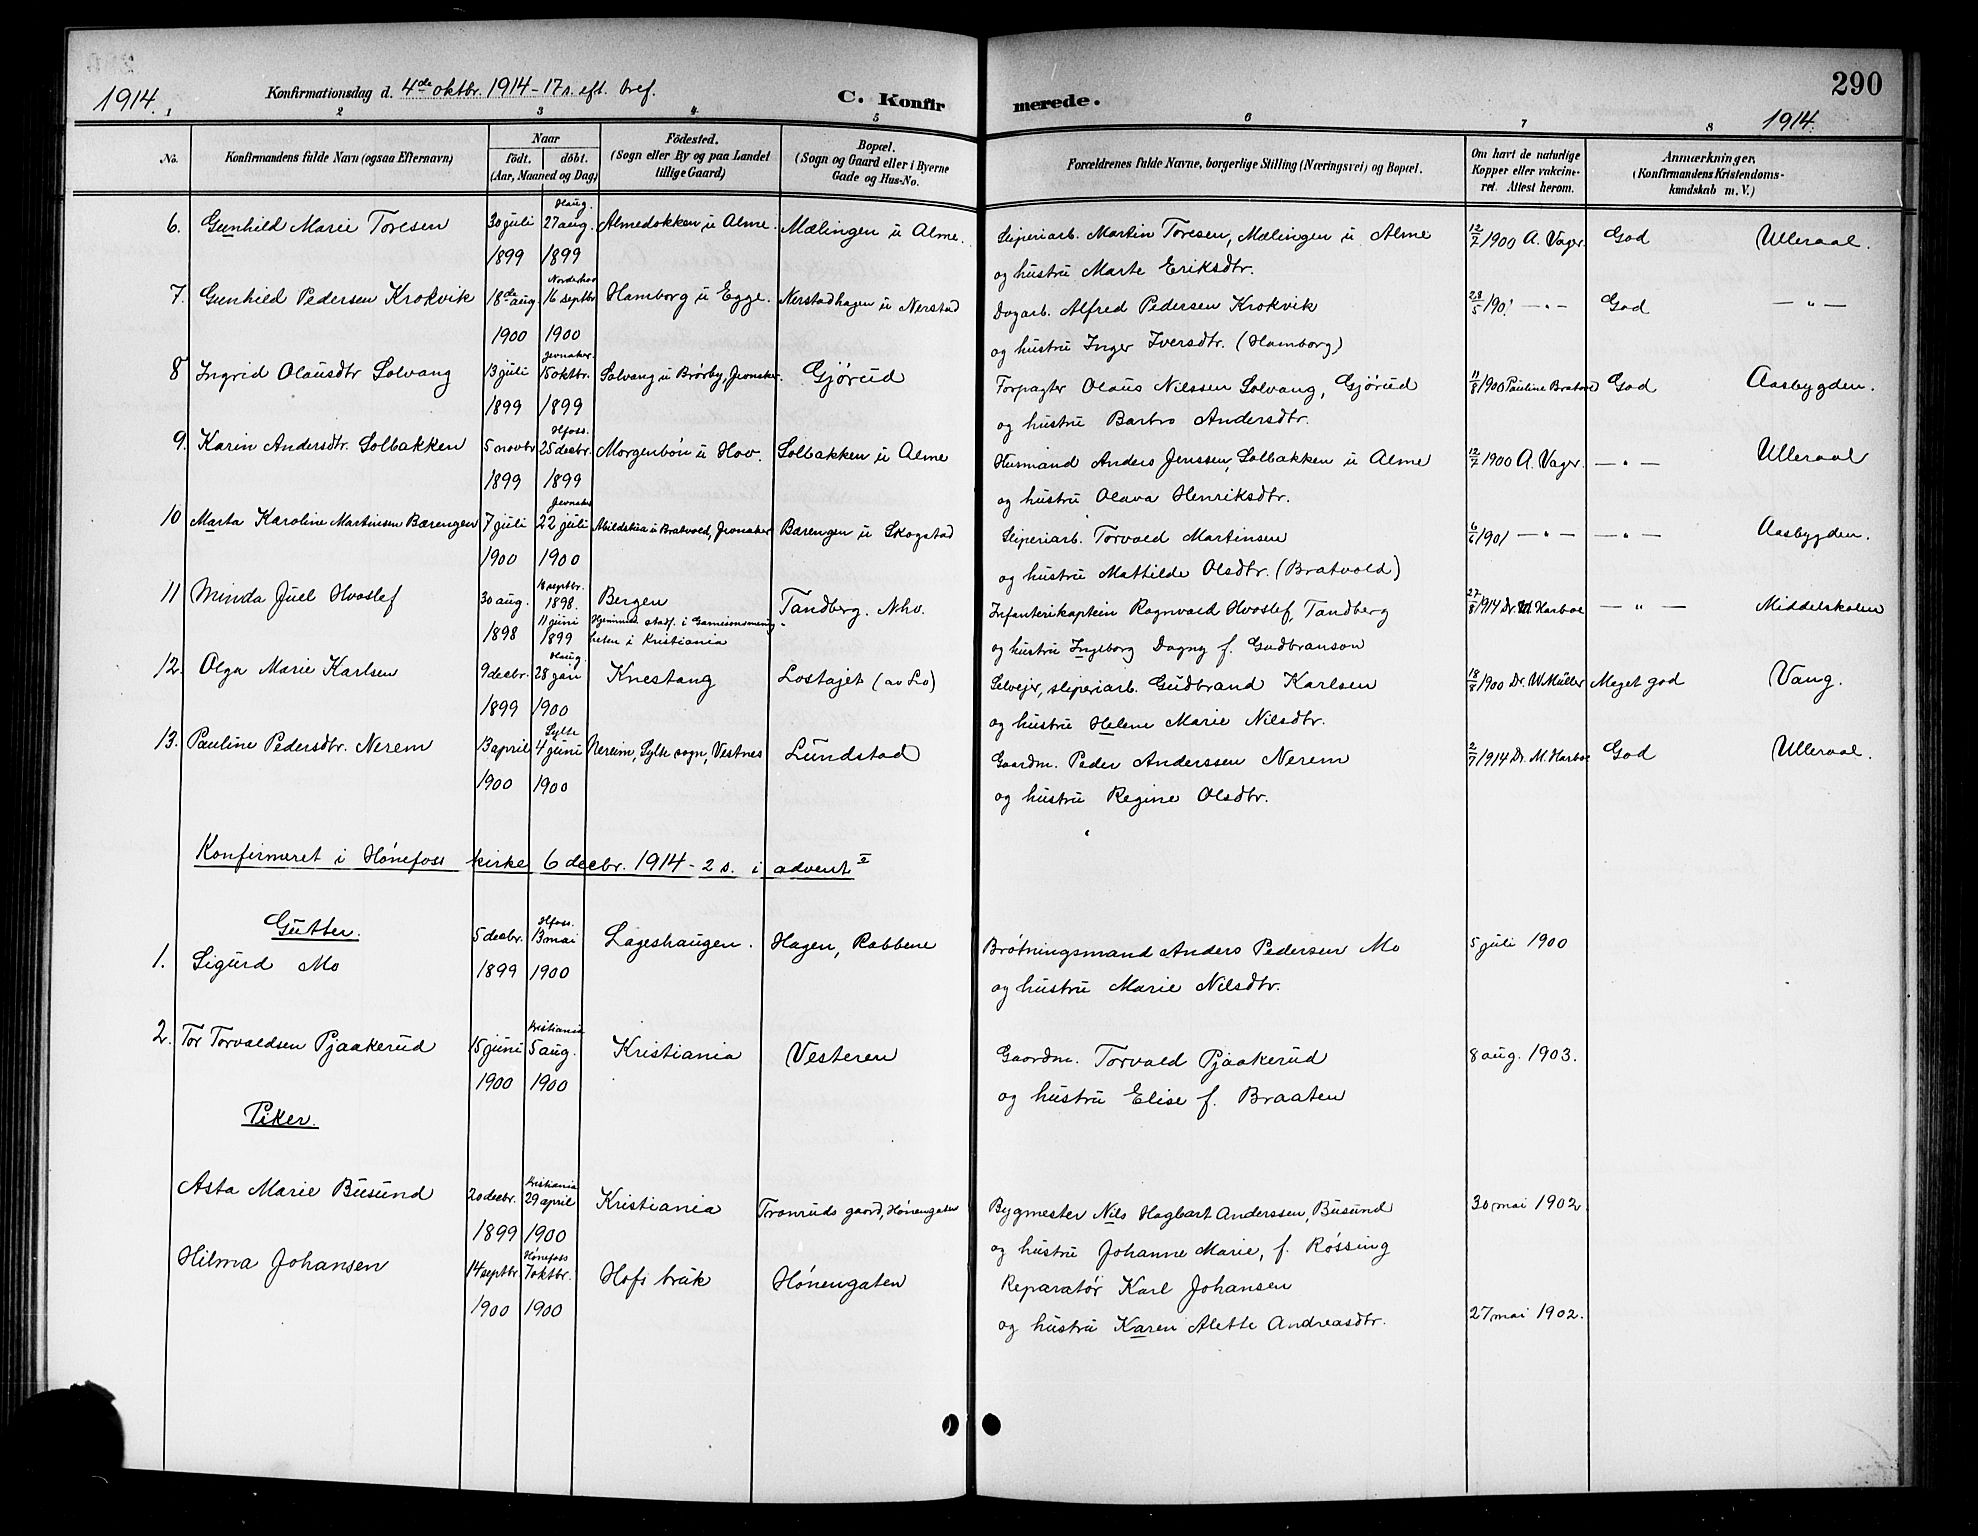 290
1914.
Konfirmationsdag d. 4de oktbr. 1914 - 17 s. eft. tref.
C. Konfirmerede.
1914.
1 2 3 4 5 6 7 8
No.
Konfirmandens fulde Navn (ogsaa Efternavn)
Naar
födt. döbt.
(Aar, Maaned og Dag)
Födested.
(Sogn eller By og paa Landet
tillige Gaard)
Bopæl.
(Sogn og Gaard eller i Byerne
Gade og Hus-No.
Forældrenes fulde Navne, borgerlige Stilling (Næringsvei) og Bopæl.
Om havt de naturlige
Kopper eller vaccine-
ret. Attest herom.
Anmærkninger,
(Konfirmandens Kristendoms-
kundskab m. V.)
Haug.
6. Gunhild Marie Toresen 30 juli 27 aug. Almedokken u Alme. Mælingen u Alme. Sliperiarb. Martin Toresen, Mælingen u Alme 12/7 1900 A. Vager. God Ulleraal.
1899 1899 og hustru Marte Eriksdtr.
Norderhov
7. Gunhild Pedersen Krokvik 18de aug. 16 septbr Hamborg u Egge. Nerstadhagen u Nerstad Dagarb. Alfred Pedersen Krokvik 28/5 190! — " — God — " —
1900 1900 og hustru Inger Iversdtr. (Hamborg)
Jevnaker.
8 Ingrid Olausdtr Solvang 13 juli 15 oktbr. Solvang u Brørby, Jevnaker. Gjørud Forpagter Olaus Nilssen Solvang, Gjørud 11/8 1900 Pauline Bratvold God Aasbygden.
1899 1899 og hustru Barbro Andersdtr.
Hfoss.
9. Karin Andersdtr. Solbakken 5 novbr 25 decbr. Morgenbøn u Hov. Solbakken u Alme Husmand Anders Jenssen, Solbakken u Alme 12/7 1900 A. Vager. — " — Ulleraal
1899 1899 og hustru Olava Henriksdtr.
Jevnaker
10 Marta Karoline Martinsen Bærengen 7 juli 22 juli u Bratvold, Jevnaker Bærengen u Skogstad Sliperiarb. Torvald Martinsen 6/6 1901 — " — — " — Aasbygden.
1900 1900 og hustru Mathilde Olsdtr. (Bratvold)
11 Minda Juel Hvoslef 30 aug. septbr. 1898. Bergen Tandberg. Nhv. Infanterikaptein Ragnvald Hvoslef, Tandberg 27/8 1914 Dr. M. Harboe — " — Middelskolen
1898 11 juni 1899 Hjemmed. stadf. i Garnisonsmenig-
heten i Kristiania og hustru Ingeborg Dagny f. Gudbranson
Haug.
12. Olga Marie Karlsen 9 decbr. 28 jan Knestang Lostajet (av Lo) Selvejer, sliperiarb. Gudbrand Karlsen 18/8 1900 Dr. W. Müller Meget god Vang.
1899 1900 og hustru Helene Marie Nilsdtr.
Sylte
13. Pauline Pedersdtr. Nerem 13 april 4 juni Nereim, Sylte sogn, Vestnes Lundstad Gaardm. Peder Anderssen Nerem 2/7 1914 Dr. M. Harboe God Ulleraal.
1900 1900 og hustru Regine Olsdtr.
Konfirmeret i Hönefoss kirke 6 decbr. 1914 - 2 s. i advent
Gutter.
Hfoss.
1. Sigurd Mo 5 decbr. 13 mai Lageshaugen. Hagen, Rabbene Brøtningsmand Anders Pedersen Mo 5 juli 1900
1899 1900 og hustru Marie Nilsdtr.
Kristiania
2. Tor Torvaldsen Pjaakerud 15 juni 5 aug. Kristiania Vesteren Gaardm. Torvald Pjaakerud 8 aug. 1903.
1900 1900 og hustru Elise f. Braaten
Piker.
Kristiania
Asta Marie Busund 20 decbr. 29 april Kristiania Tranruds gaard, Hønengaten Bygmester Nils Hagbart Anderssen, Busund 30 mai 1902.
1899 1900 og hustru Johanne Marie, f. Røssing
Hönefoss
Hilma Johansen 14 septbr. 7 oktbr. Hofs bruk Hönengaten Reparatør Karl Johansen
1900 1900 og hustru Karen Alette Andreasdtr. 27 mai 1902.